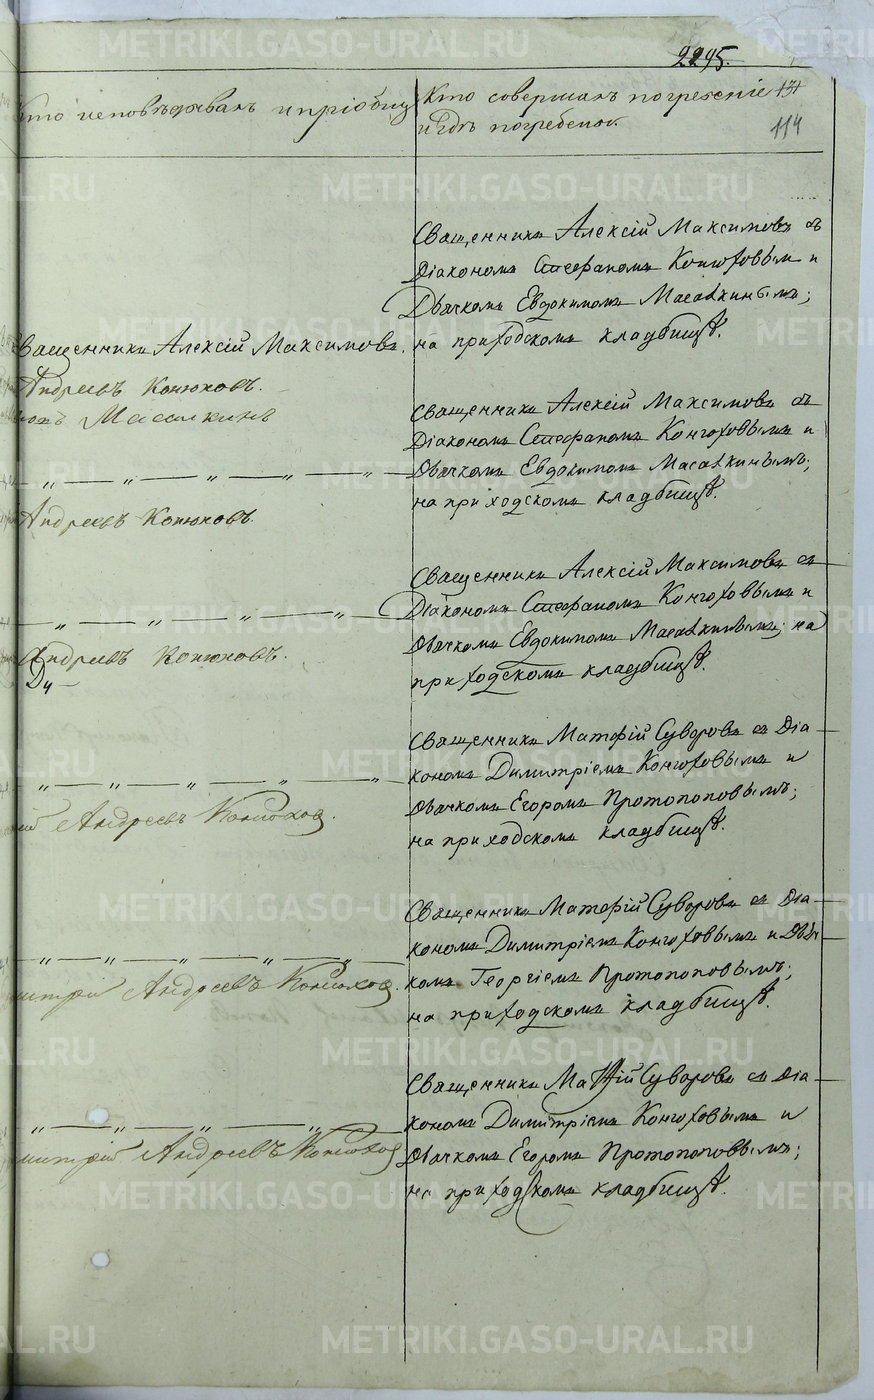 2295.
Кто исповѣдывалъ и пріобщ
Кто совершалъ погребеніе
131
и гдѣ погребены.
114
Священникъ Алексій Максимовъ съ
Діакономъ Стефаномъ Конюховымъ и
Дьячкомъ Евдокимомъ Масалкинымъ;
на приходскомъ кладбищѣ.
Священникъ Алексій Максимовъ.
Андреевъ Конюховъ.
Масалкинъ
Священникъ Алексій Максимовъ съ
Діакономъ Стефаномъ Конюховымъ и
Дьячкомъ Евдокимомъ Масалкинымъ;
на приходскомъ кладбищѣ.
— „ — „ — „ — „ — „ —
Андреевъ Конюховъ.
Священникъ Алексій Максимовъ съ
Діакономъ Стефаномъ Конюховымъ и
Дьячкомъ Евдокимомъ Масалкинымъ; на
приходскомъ кладбищѣ.
— „ — „ — „ — „ —
Андреевъ Конюховъ.
Священникъ Матфій Суворовъ съ Діа-
кономъ Димитріемъ Конюховымъ и
Дьячкомъ Егоромъ Протопоповымъ;
на приходскомъ кладбищѣ.
„ — „ — „ — „ — „ —
ій Андреевъ Конюховъ.
Священникъ Матфій Суворовъ съ Діа-
кономъ Димитріемъ Конюховымъ и Дьяч-
комъ Георгіемъ Протопоповымъ;
на приходскомъ кладбищѣ.
— „ — „ — „ — „ — „ —
митрій Андреевъ Конюховъ.
Священникъ Матѳій Суворовъ съ Діа-
кономъ Димитріемъ Конюховымъ и
Дьячкомъ Егоромъ Протопоповымъ;
на приходскомъ кладбищѣ.
„ — „ — „ — „ —
митрій Андреевъ Конюховъ
METRIKI.GASO-URAL.RU